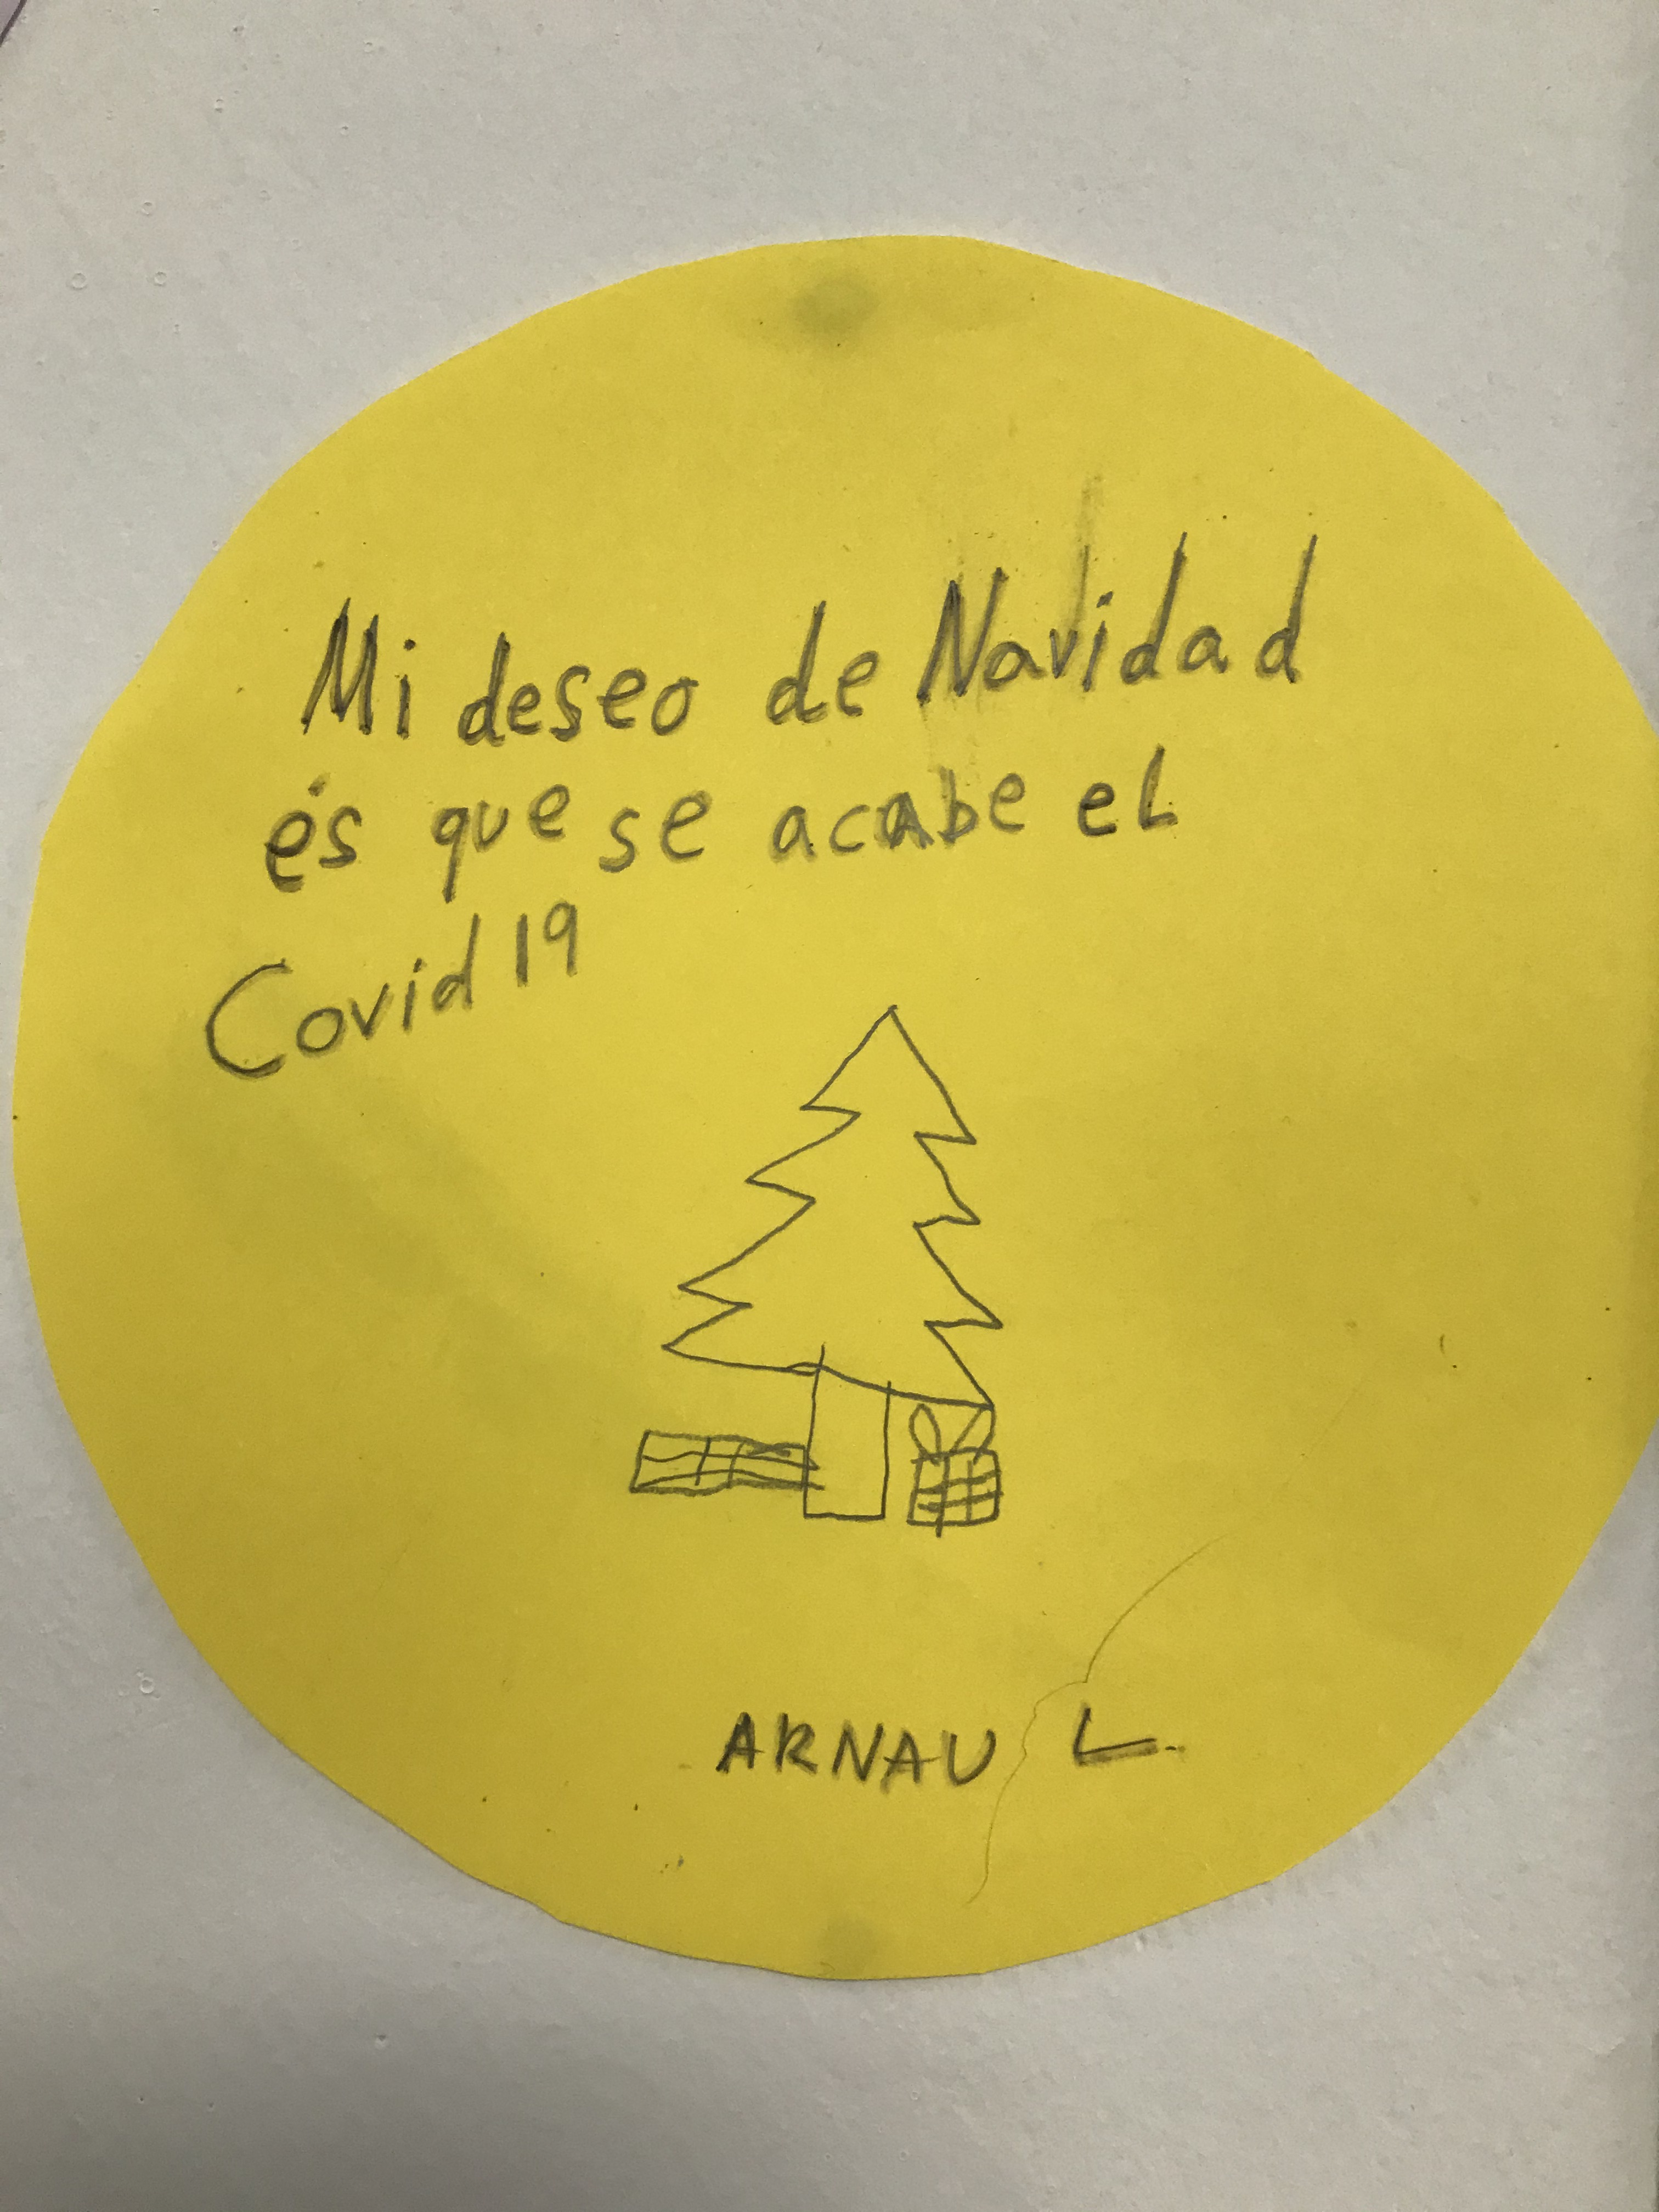 Mi deseo de Navidad
és que se acabe el
Covid 19
ARNAU L.